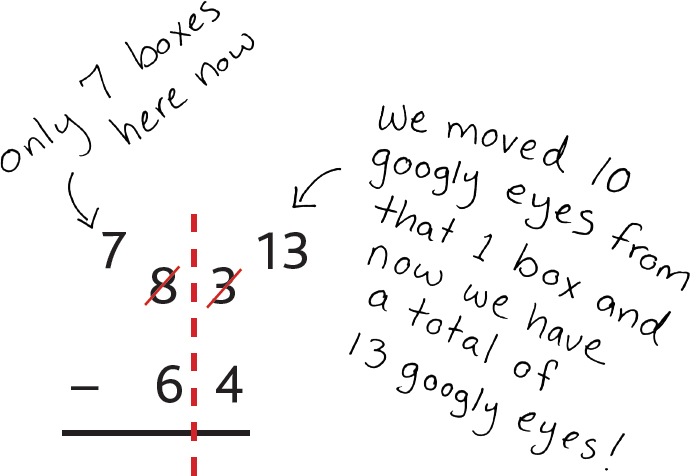 only 7 boxes
here now
We moved 10
googly eyes from
that 1 box and
now we have
a total of
13 googly eyes!
7 8 3 13
- 6 4